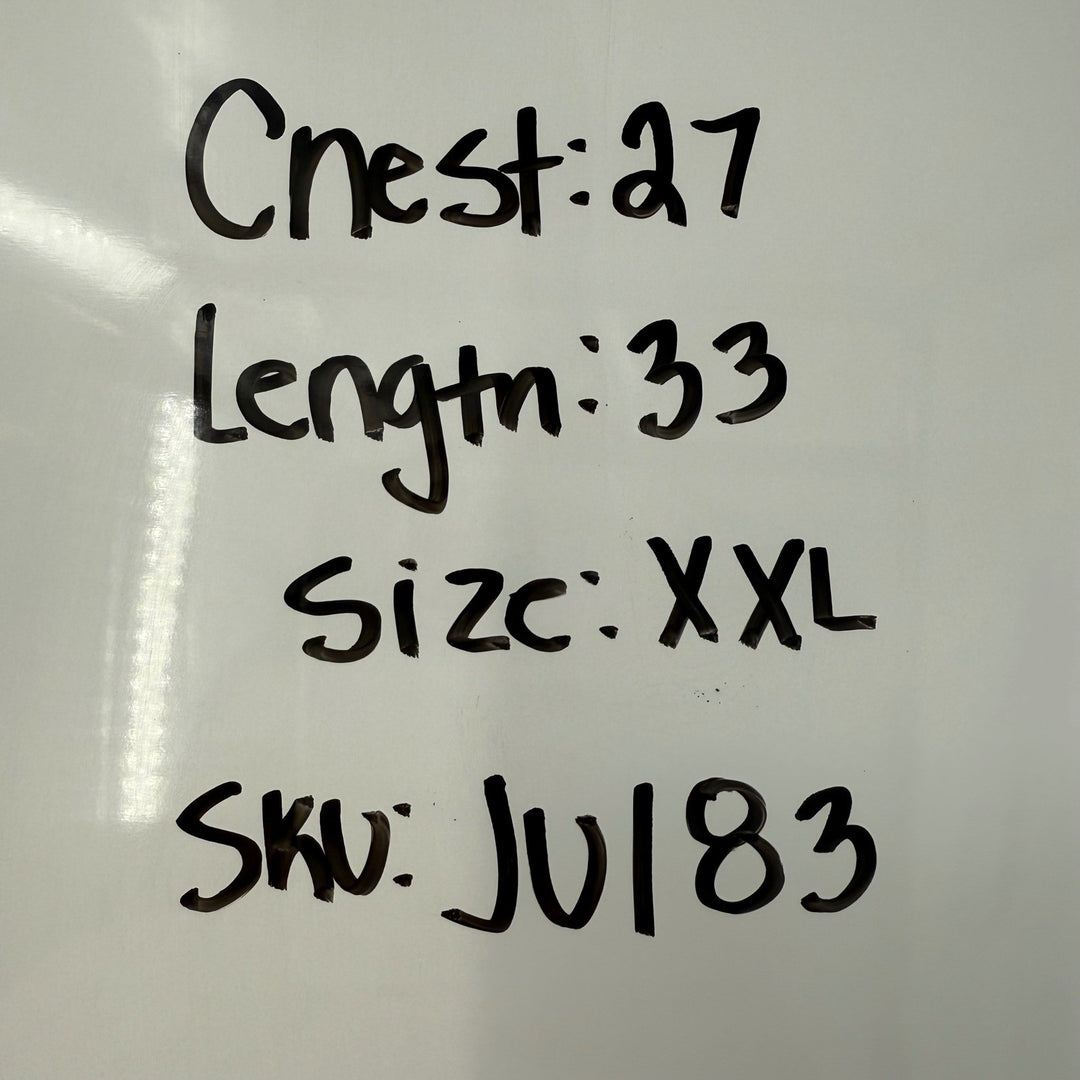 Chest: 27
Length: 33
Size: XXL
SKU: Jul83